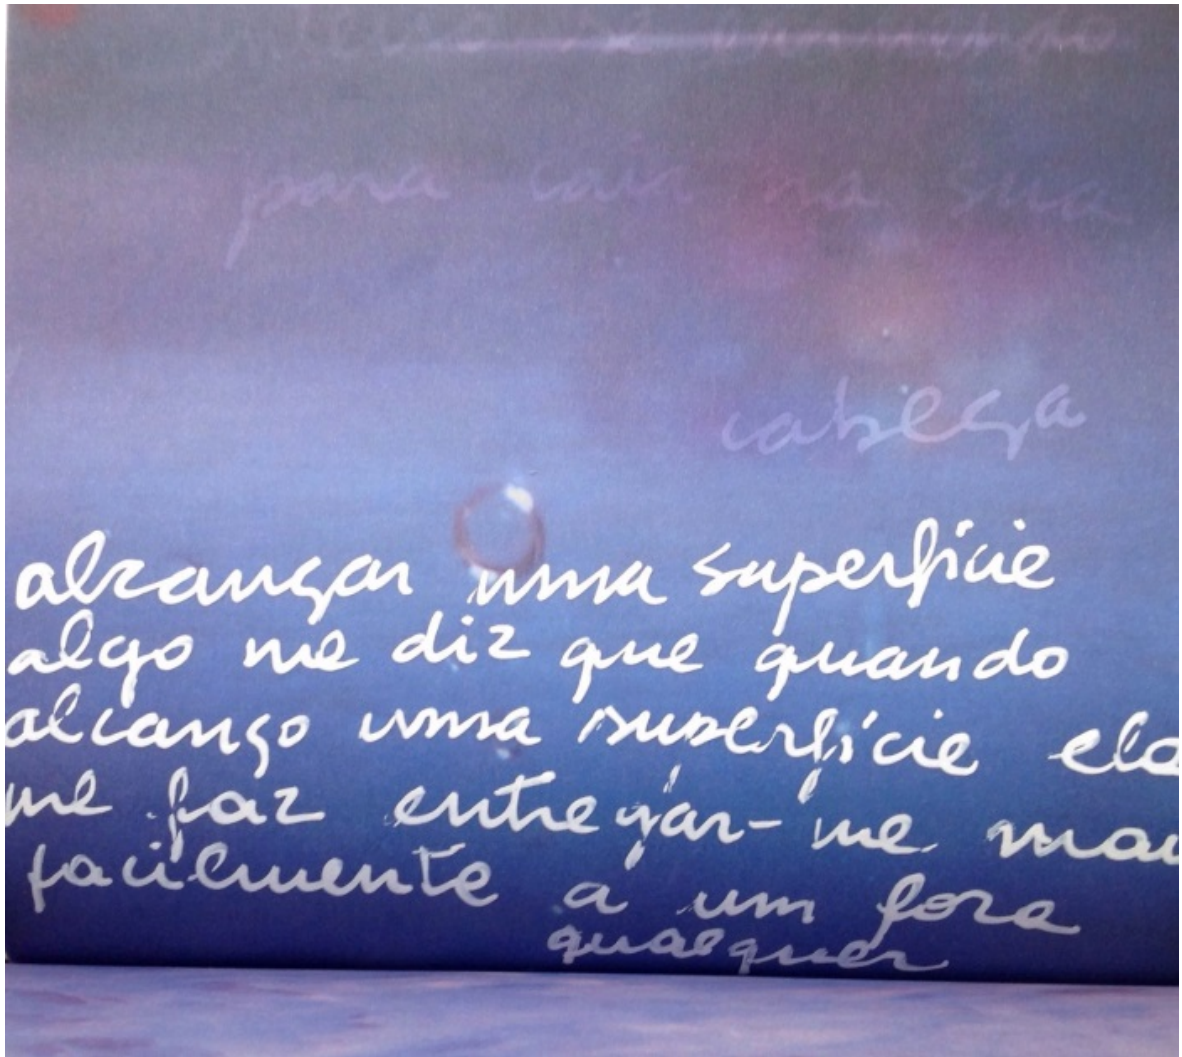 para cair na sua
cabeça
alcançar uma superfície
algo me diz que quando
alcanço uma superfície ela
me faz entregar-me mai
facilmente a um fora
qualquer